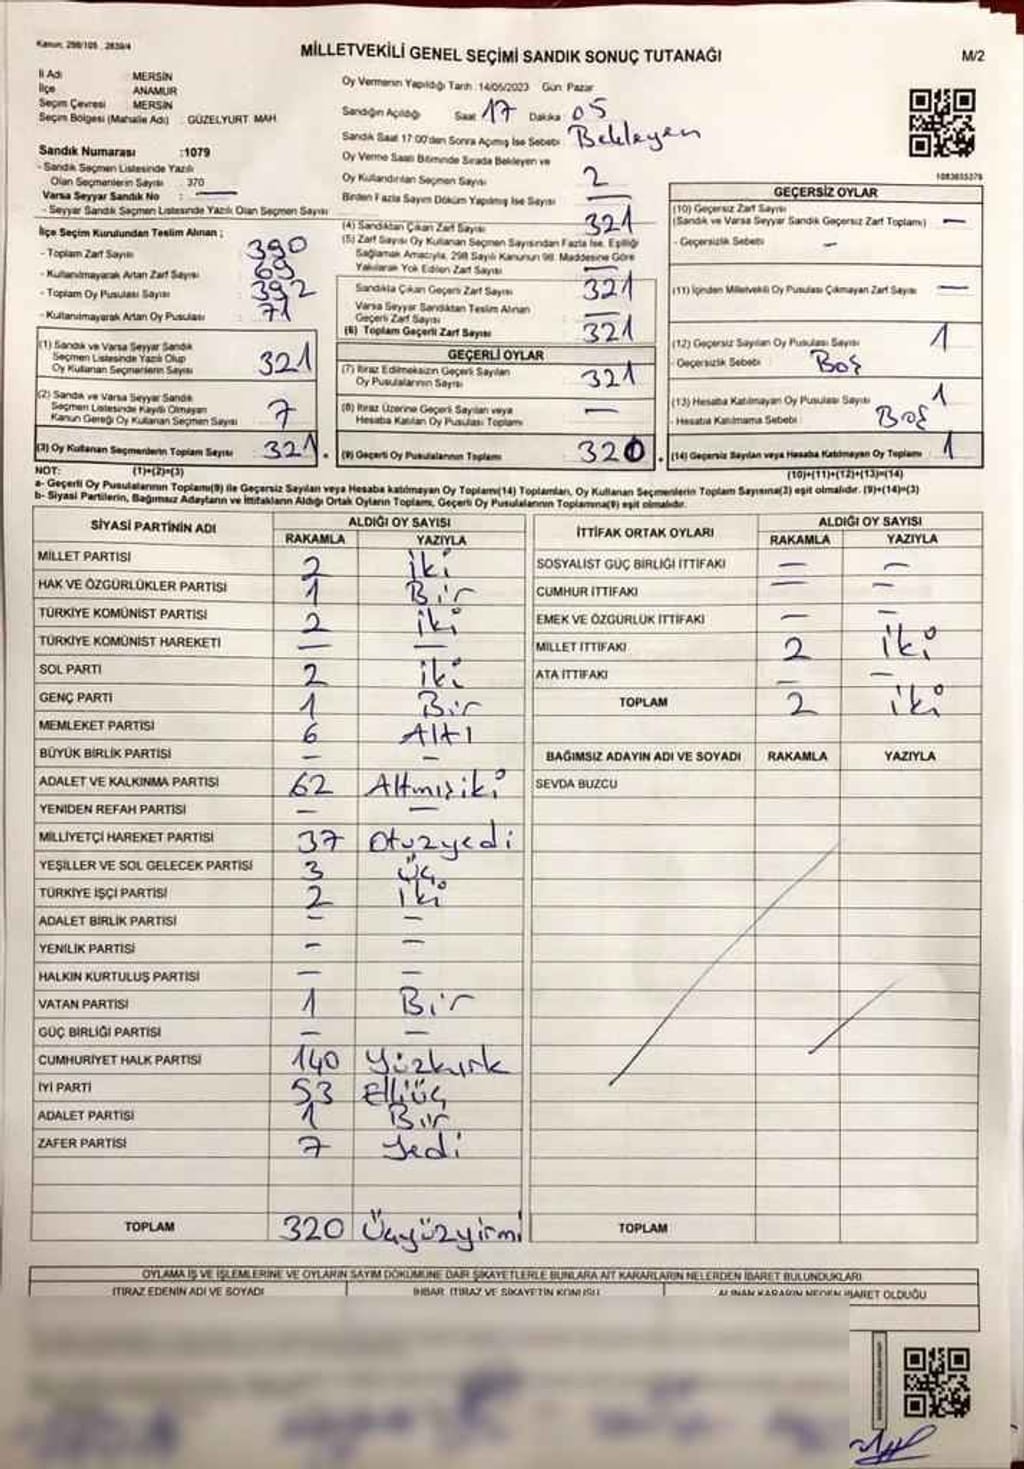 Kanun: 298/105 , 2839/4
MİLLETVEKİLİ GENEL SEÇİMİ SANDIK SONUÇ TUTANAĞI
M/2
İl Adı : MERSİN
İlçe : ANAMUR
Seçim Çevresi : MERSİN
Seçim Bölgesi (Mahalle Adı) : GÜZELYURT MAH.
Sandık Numarası :1079
- Sandık Seçmen Listesinde Yazılı
Olan Seçmenlerin Sayısı : 370
Varsa Seyyar Sandık No : —
- Seyyar Sandık Seçmen Listesinde Yazılı Olan Seçmen Sayısı
İlçe Seçim Kurulundan Teslim Alınan ;
- Toplam Zarf Sayısı 390
- Kullanılmayarak Artan Zarf Sayısı 69
- Toplam Oy Pusulası Sayısı 392
- Kullanılmayarak Artan Oy Pusulası 71
(1) Sandık ve Varsa Seyyar Sandık
Seçmen Listesinde Yazılı Olup
Oy Kullanan Seçmenlerin Sayısı 321
(2) Sandık ve Varsa Seyyar Sandık
Seçmen Listesinde Kayıtlı Olmayan
Kanun Gereği Oy Kullanan Seçmen Sayısı 7
(3) Oy Kullanan Seçmenlerin Toplam Sayısı 321
Oy Vermenin Yapıldığı Tarih : 14/05/2023 Gün: Pazar
Sandığın Açıldığı Saat 17 Dakika 05
Sandık Saat 17:00'den Sonra Açılmış İse Sebebi Bekleyen
Oy Verme Saati Bitiminde Sırada Bekleyen ve
Oy Kullandırılan Seçmen Sayısı 2
Birden Fazla Sayım Döküm Yapılmış İse Sayısı —
(4) Sandıktan Çıkan Zarf Sayısı 321
(5) Zarf Sayısı Oy Kullanan Seçmen Sayısından Fazla İse, Eşitliği
Sağlamak Amacıyla, 298 Sayılı Kanunun 98. Maddesine Göre
Yakılarak Yok Edilen Zarf Sayısı —
Sandıkta Çıkan Geçerli Zarf Sayısı 321
Varsa Seyyar Sandıktan Teslim Alınan
Geçerli Zarf Sayısı —
(6) Toplam Geçerli Zarf Sayısı 321
GEÇERLİ OYLAR
(7) İtiraz Edilmeksizin Geçerli Sayılan
Oy Pusulalarının Sayısı 321
(8) İtiraz Üzerine Geçerli Sayılan veya
Hesaba Katılan Oy Pusulası Toplamı —
(9) Geçerli Oy Pusulalarının Toplamı 320
1083655379
GEÇERSİZ OYLAR
(10) Geçersiz Zarf Sayısı
(Sandık ve Varsa Seyyar Sandık Geçersiz Zarf Toplamı) —
- Geçersizlik Sebebi : —
(11) İçinden Milletvekili Oy Pusulası Çıkmayan Zarf Sayısı —
(12) Geçersiz Sayılan Oy Pusulası Sayısı 1
- Geçersizlik Sebebi : Boş
(13) Hesaba Katılmayan Oy Pusulası Sayısı 1
- Hesaba Katılmama Sebebi : Boş
(14) Geçersiz Sayılan veya Hesaba Katılmayan Oy Toplamı 1
NOT: (1)+(2)=(3) (10)+(11)+(12)+(13)=(14)
a- Geçerli Oy Pusulalarının Toplamı(9) ile Geçersiz Sayılan veya Hesaba katılmayan Oy Toplamı(14) Toplamları, Oy Kullanan Seçmenlerin Toplam Sayısına(3) eşit olmalıdır. (9)+(14)=(3)
b- Siyasi Partilerin, Bağımsız Adayların ve İttifakların Aldığı Ortak Oyların Toplamı, Geçerli Oy Pusulalarının Toplamına(9) eşit olmalıdır.
SİYASİ PARTİNİN ADI ALDIĞI OY SAYISI
RAKAMLA YAZIYLA
MİLLET PARTİSİ 2 iki
HAK VE ÖZGÜRLÜKLER PARTİSİ 1 Bir
TÜRKİYE KOMÜNİST PARTİSİ 2 iki
TÜRKİYE KOMÜNİST HAREKETİ — —
SOL PARTİ 2 iki
GENÇ PARTİ 1 Bir
MEMLEKET PARTİSİ 6 Altı
BÜYÜK BİRLİK PARTİSİ — —
ADALET VE KALKINMA PARTİSİ 62 Altmışiki
YENİDEN REFAH PARTİSİ — —
MİLLİYETÇİ HAREKET PARTİSİ 37 Otuzyedi
YEŞİLLER VE SOL GELECEK PARTİSİ 3 Üç
TÜRKİYE İŞÇİ PARTİSİ 2 iki
ADALET BİRLİK PARTİSİ — —
YENİLİK PARTİSİ — —
HALKIN KURTULUŞ PARTİSİ — —
VATAN PARTİSİ 1 Bir
GÜÇ BİRLİĞİ PARTİSİ — —
CUMHURİYET HALK PARTİSİ 140 Yüzkırk
İYİ PARTİ 53 Elliüç
ADALET PARTİSİ 1 Bir
ZAFER PARTİSİ 7 Yedi
TOPLAM 320 Üçyüzyirmi
İTTİFAK ORTAK OYLARI ALDIĞI OY SAYISI
RAKAMLA YAZIYLA
SOSYALİST GÜÇ BİRLİĞİ İTTİFAKI — —
CUMHUR İTTİFAKI — —
EMEK VE ÖZGÜRLÜK İTTİFAKI — —
MİLLET İTTİFAKI 2 iki
ATA İTTİFAKI — —
TOPLAM 2 iki
BAĞIMSIZ ADAYIN ADI VE SOYADI RAKAMLA YAZIYLA
SEVDA BUZCU
TOPLAM
OYLAMA İŞ VE İŞLEMLERİNE VE OYLARIN SAYIM DÖKÜMÜNE DAİR ŞİKAYETLERLE BUNLARA AİT KARARLARIN NELERDEN İBARET BULUNDUKLARI
İTİRAZ EDENİN ADI VE SOYADI İHBAR, İTİRAZ VE ŞİKAYETİN KONUSU ALINAN KARARIN NEDEN İBARET OLDUĞU